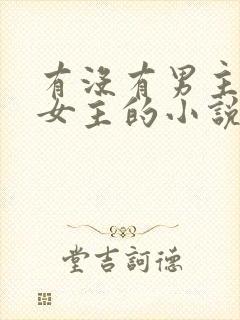 有沒有男主
女主的小說
堂吉訶德